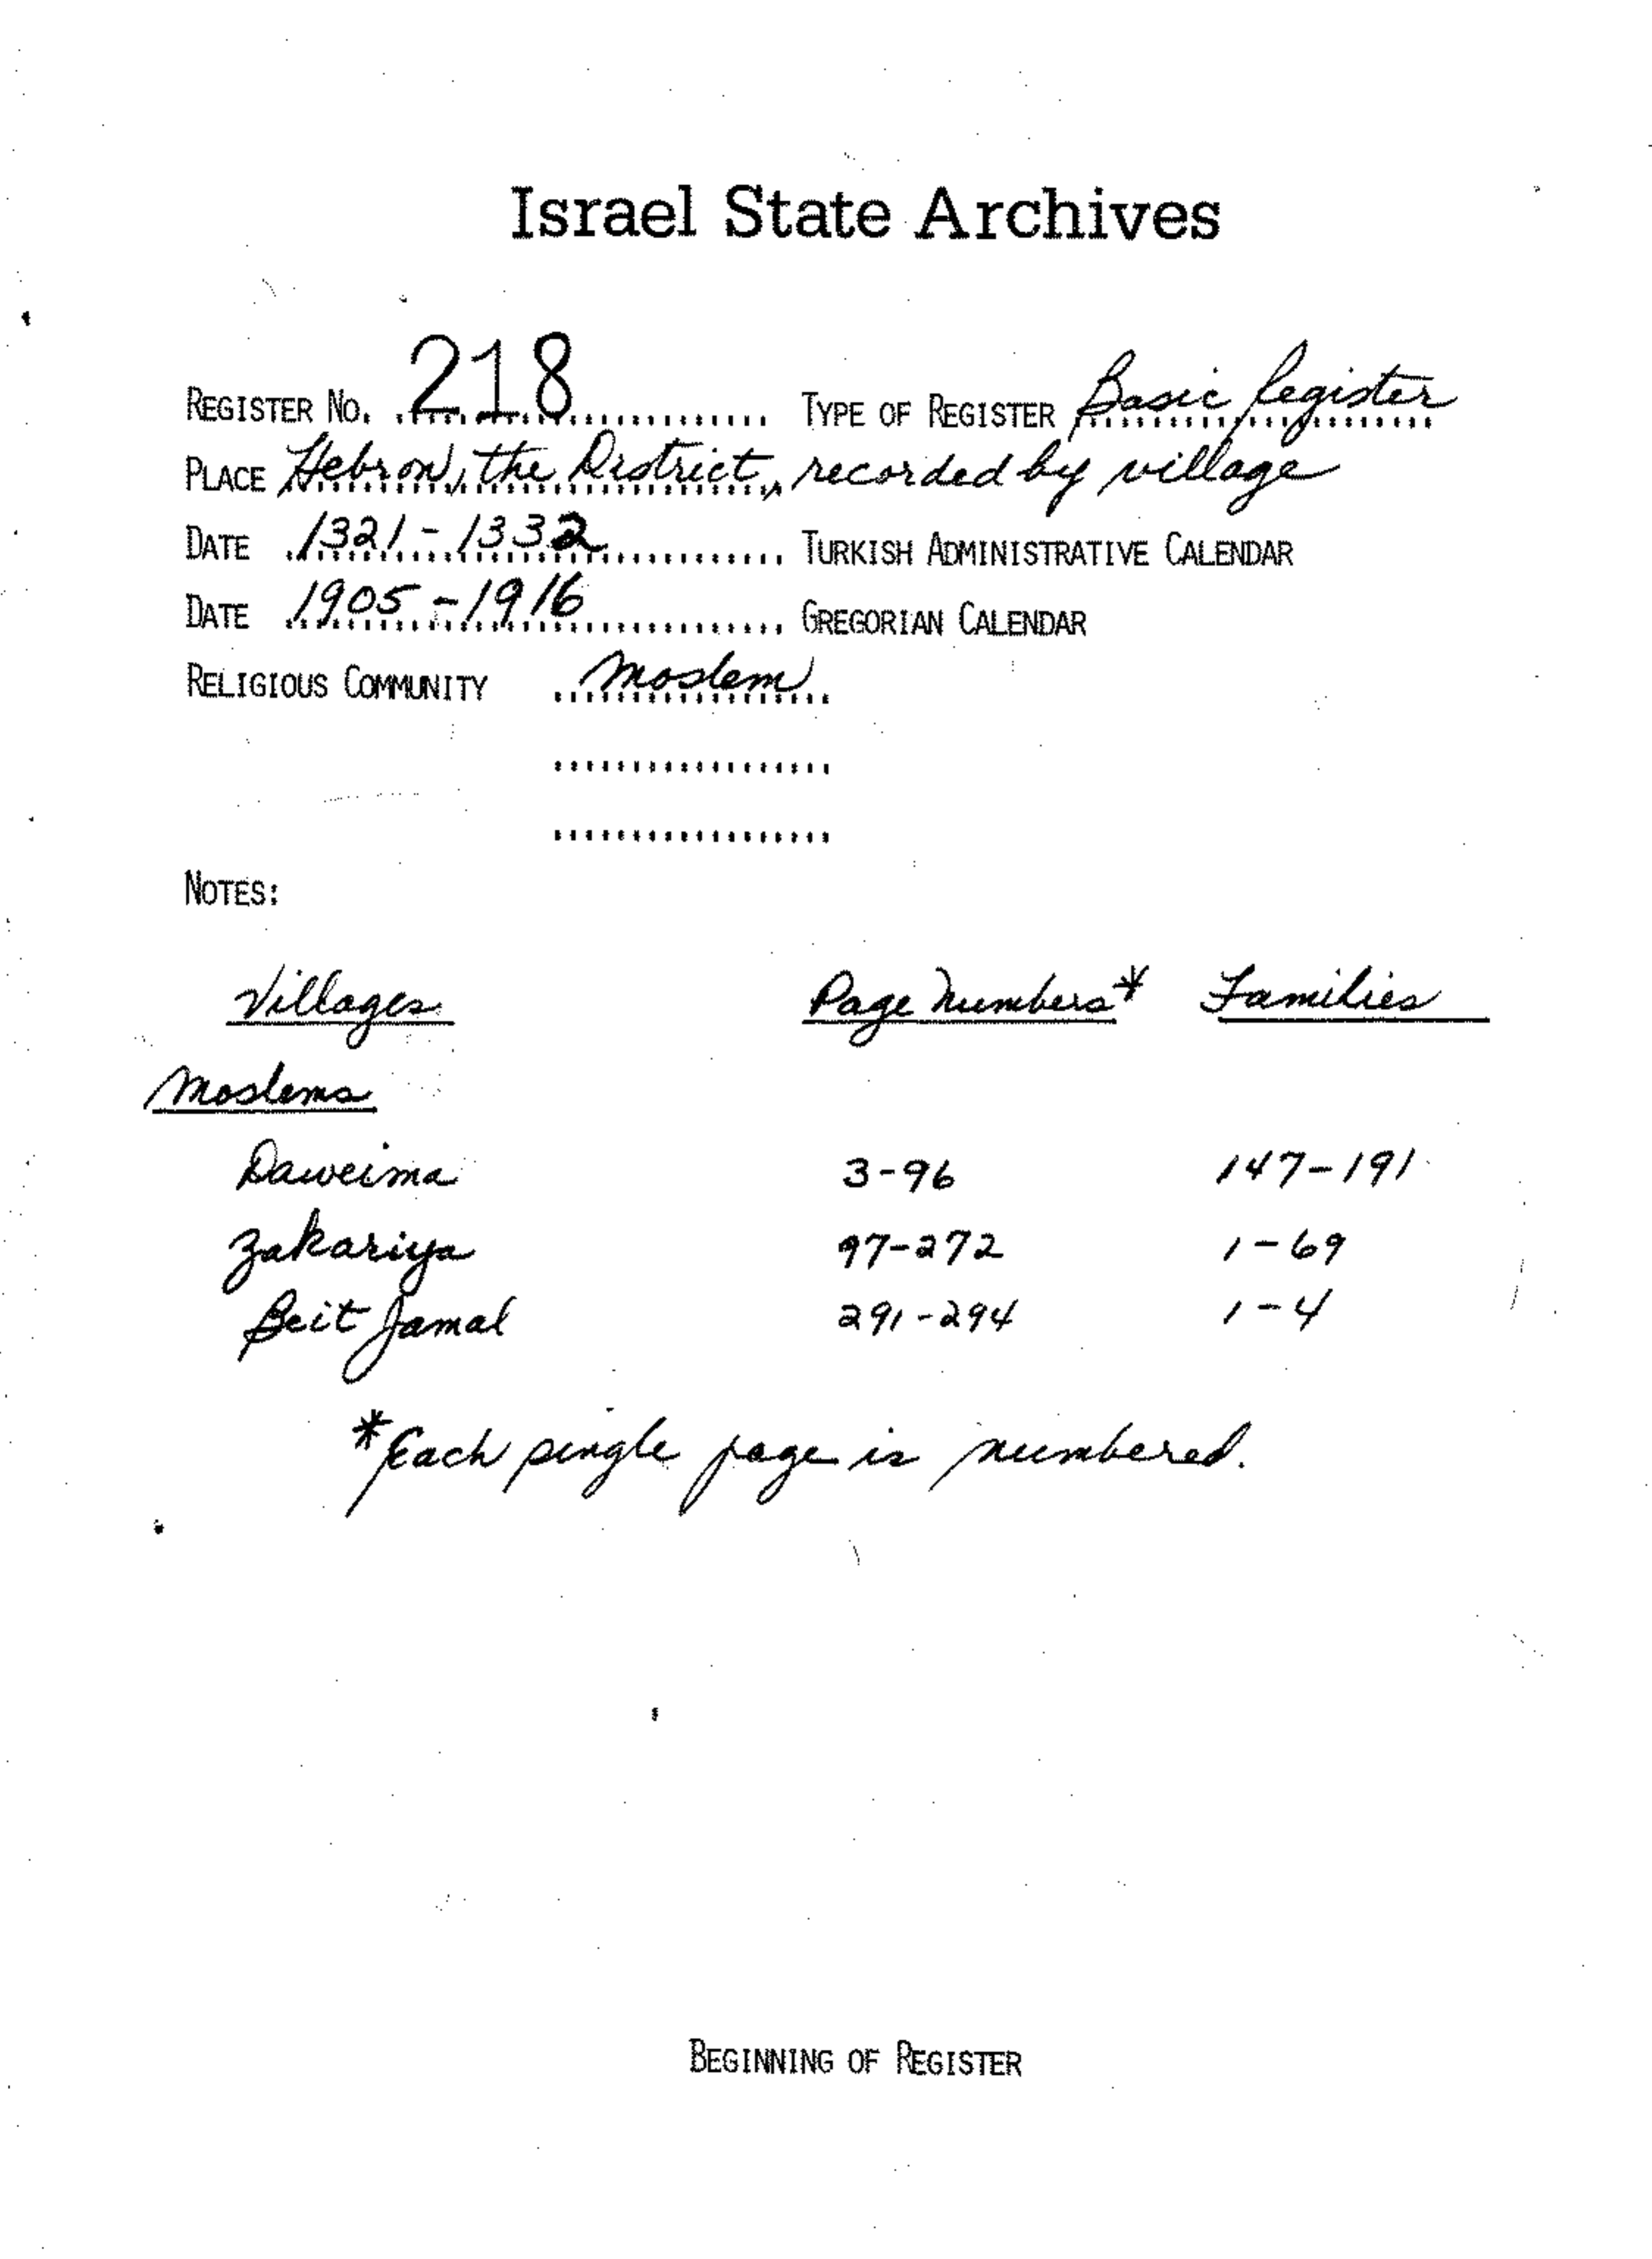 Israel State Archives
REGISTER NO. 218 TYPE OF REGISTER Basic Register
PLACE Hebron, the District, recorded by village
DATE 1321-1332 TURKISH ADMINISTRATIVE CALENDAR
DATE 1905-1916 GREGORIAN CALENDAR
RELIGIOUS COMMUNITY Moslem
NOTES:
Villages Page Numbers* Families
Moslems
Daweima 3-96 147-191
Zakariya 97-272 1-69
Beit Jamal 291-294 1-4
*Each single page is numbered.
BEGINNING OF REGISTER